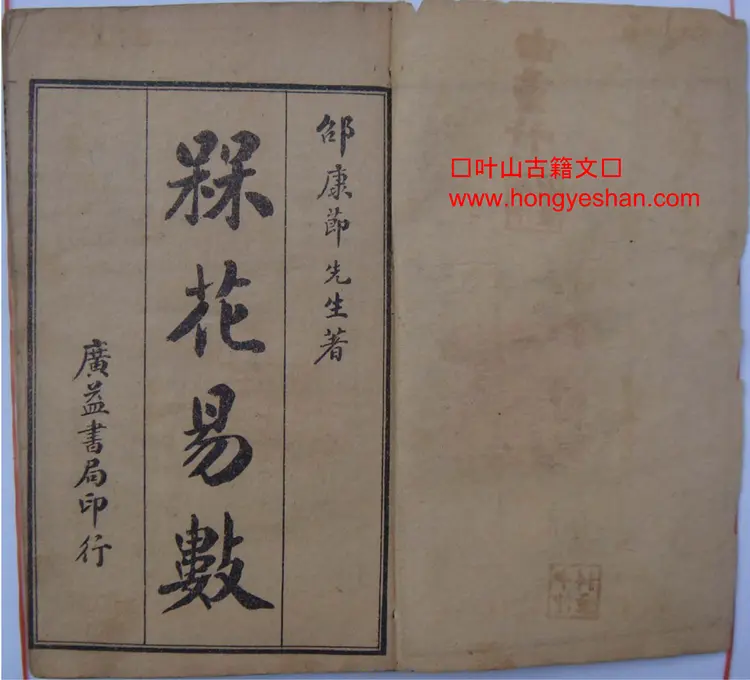 □叶山古籍文□
www.hongyeshan.com
邵康節先生著
槑花易數
廣益書局印行